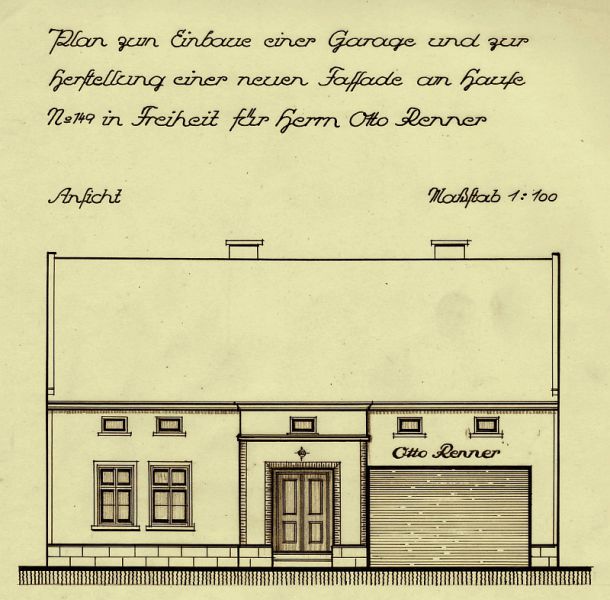 Plan zum Einbaue einer Garage und zur
Herstellung einer neuen Fassade am Hause
No 149 in Freiheit für Herrn Otto Renner
Ansicht
Maßstab 1:100
Otto Renner